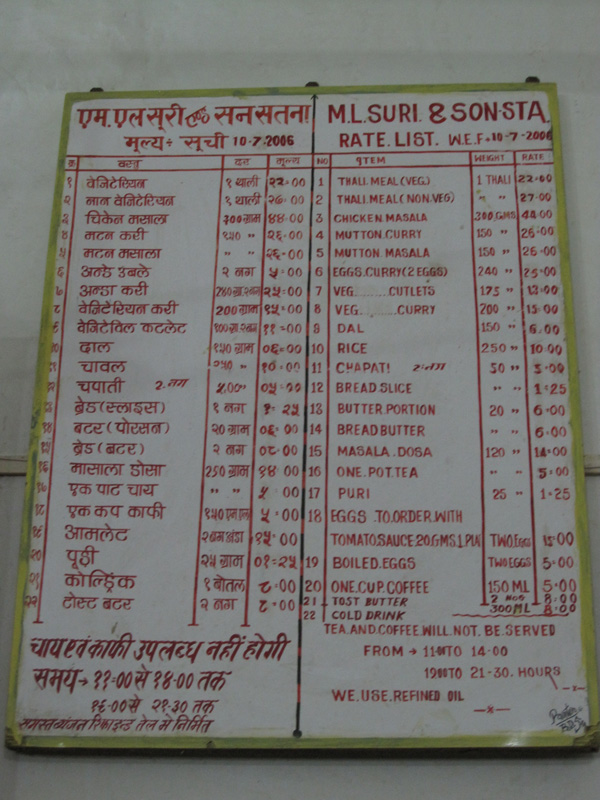 एम.एल सूरी एण्ड सन सतना
मूल्य÷ सूची 10-7-2006
क्र वस्तु दर मूल्य
१ वेजिटेरियन १ थाली २२=00
२ नान वेजिटेरियन १ थाली २७=00
३ चिकेन मसाला ३00 ग्राम ४४=00
४ मटन करी १५० " २६=00
५ मटन मसाला " " २६=00
६ अन्डे उबले २ नग ५=00
७ अन्डा करी २५=00
८ वेजिटेरियन करी 200 ग्राम १५=00
कटलेट ११=00
१० दाल १५0 ग्राम ०६=00
११ चावल २५0 " १०=00
१२ चपाती 2 नग ०५=00
१३ ब्रेड (स्लाइस) १ नग १=२५
१४ बटर (पोरसन) २0 ग्राम ०६=00
१५ ब्रेड (बटर) २ नग ०६=00
१६ मासाला डोसा 250 ग्राम १४ 00
१७ एक पाट चाय " " ५ 00
१८ एक कप काफी १५0 एम.एल ५=00
१९ आमलेट २ नग अंडा १५=00
२० पूड़ी २५ ग्राम ०१=२५
२१ कोल्ड्रिंक १ बोतल ८=00
२२ टोस्ट बटर २ नग ८=00
चाय एवं काफी उपलब्ध नहीं होगी
समय→ ११-00 से १४-00 तक
१६-00 से २१-30 तक
समस्त व्यंजन रिफाइन्ड तेल मे निर्मित
M.L.SURI. & SON.STA.
RATE.LIST. W.E.F=10-7-2006
NO ITEM WEIGHT RATE
1 THALI.MEAL(VEG.) 1 THALI 22=00
2 THALI.MEAL(NON.VEG) " " 27=00
3 CHICKEN.MASALA 300.GMS 44=00
4 MUTTON.CURRY 150 " 26=00
5 MUTTON.MASALA 150 " 26=00
6 EGGS.CURRY(2 EGGS) 240 " 25=00
7 VEG........CUTLETS 175 "
8 VEG.......CURRY 200 " 15=00
9 DAL 150 " 6=00
10 RICE 250 " 10=00
11 CHAPATI 2=नग 50 "
12 BREAD SLICE " " 1=25
13 BUTTER.PORTION 20 " 6=00
14 BREAD BUTTER " " 6=00
15 MASALA.DOSA 120 " 14=00
16 ONE.POT.TEA " " 5=00
17 PURI 25 " 1=25
18 EGGS .TO.ORDER.WITH
TOMATO.SAUCE.20.GMS.1.PLA TWO.EGGS 15=00
19 BOILED.EGGS TWO EGGS 5=00
20 ONE.CUP.COFFEE 150 ML 5=00
21 TOST BUTTER 2 NOG 8:00
22 COLD DRINK 300 ML 8:00
TEA.AND.COFFEE.WILL.NOT.BE.SERVED
FROM → 11=00 TO 14-00
19=00 TO 21-30.HOURS
WE.USE.REFINED OIL